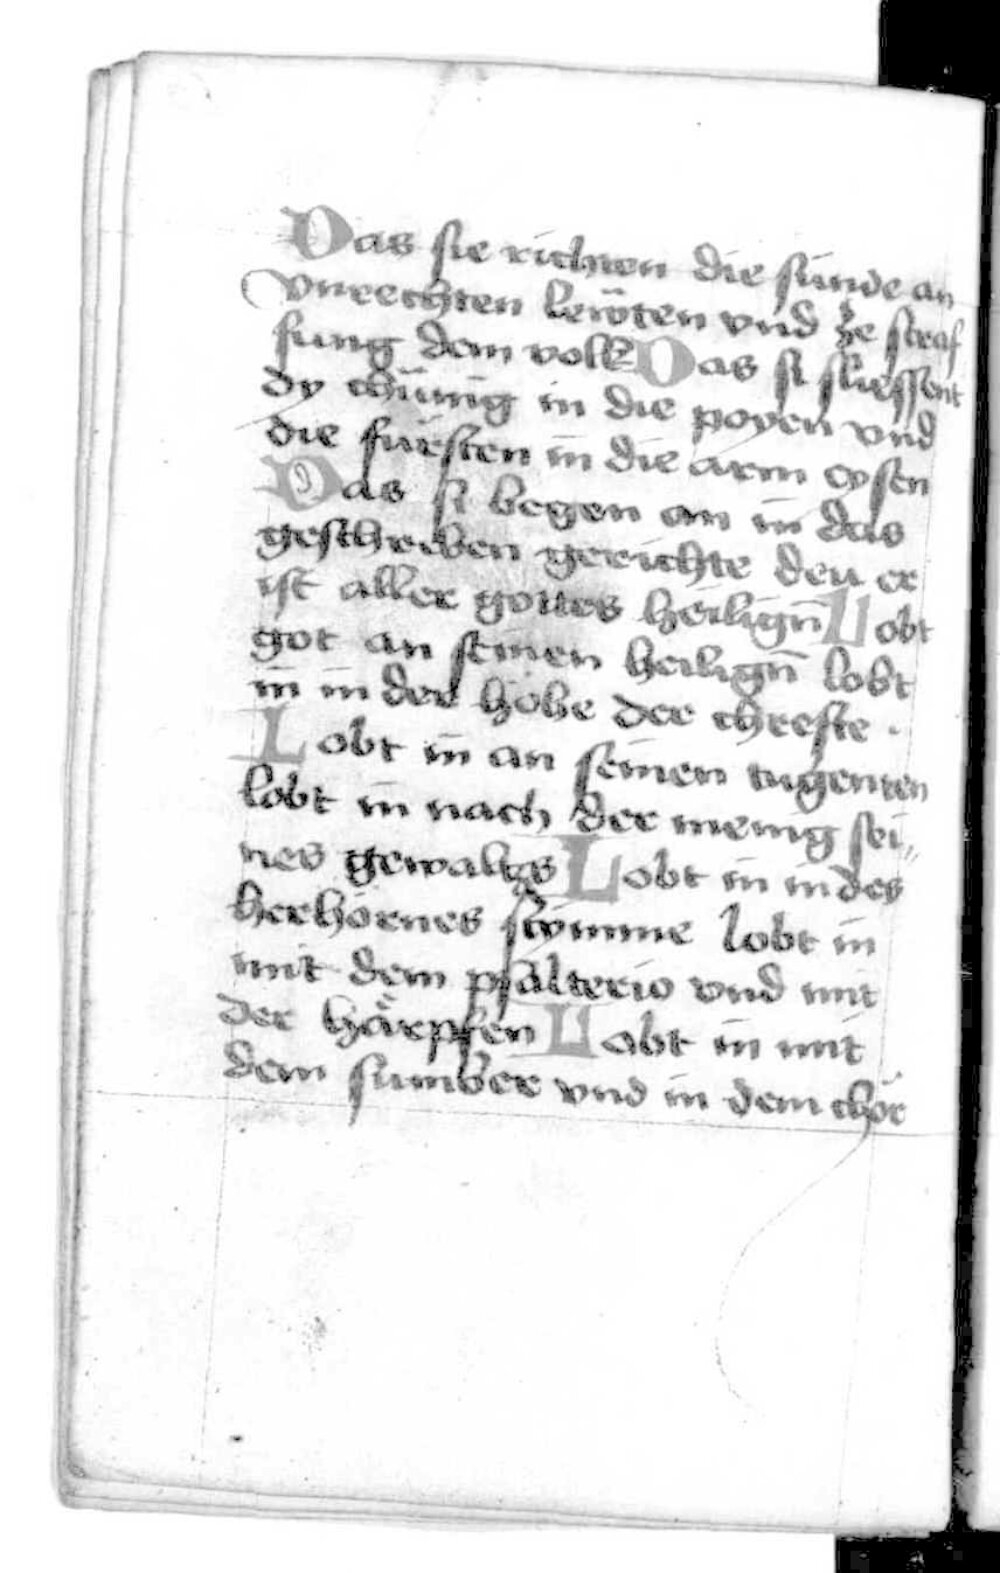 Das sie richten die sünde an
vnrechten lewten vnd ze straf
fung dem volk Das si sliessent
dy chünig in die poyen vnd
die fürsten in die arm eysen
Das si begen an in das
geschriben gerichte den er
ist aller gottes heiligñ Lobt
got an seinen heiligñ lobt
in in der höhe der chrefte .
Lobt in an seinen tugenten
lobt in nach der menig sei„
nes gewaltes Lobt in in des
herhornes stymme lobt in
mit dem psalterio vnd mit
der härpfen Lobt in mit
dem sumber vnd in dem chör